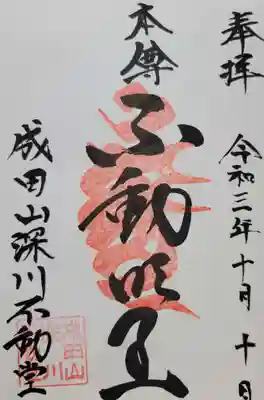 奉拝
令和三年十月十日
本尊
不動明王
成田山深川不動堂